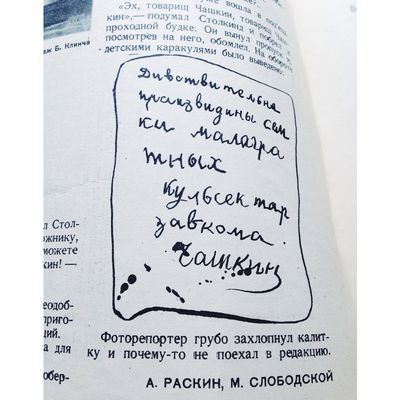 уже вошла в
«Эх, товарищ Чашкин, товарищ
кин»,— подумал Столкина и побрел
проходной будке. Он вынул пропуск и
посмотрев на него, обомлел. На оборо
детскими каракулями было выведено:
аж Б. Клинча
Дивствительна
праизвидины сем
ки малагра
тных
кульсектар
завкома.
Чашкин
л Стол-
ожнику,
можете
кин! —
еодоб-
приго-
ций.
а для
обер-
Фоторепортер грубо захлопнул калит-
ку и почему-то не поехал в редакцию.
А. РАСКИН, М. СЛОБОДСКОЙ